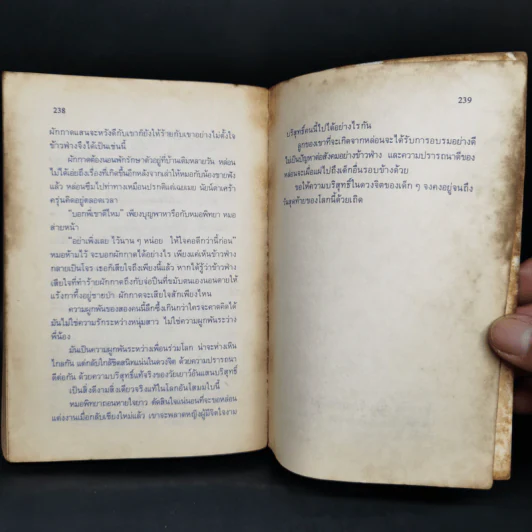 238
ผักกาดแสนจะหวังดีกับเขาก็ยังให้ร้ายกับเขาอย่างไม่ตั้งใจ
ข้าวฟ่างจึงได้เป็นเช่นนี้
ผักกาดต้องนอนพักรักษาตัวอยู่ที่บ้านเดิมหลายวัน หล่อน
ไม่ได้เอ่ยถึงเรื่องที่เกิดขึ้นอีกหลังจากเล่าให้หมอกับพ้องชายฟัง
แล้ว หล่อนซึมไปท่าทางเหมือนปรกติแต่เฉยเมย นัยน์ตาเศร้า
ครุ่นคิดอยู่ตลอดเวลา
“บอกพี่เขาดีไหม” เพียงบุญพาหารือกับหมอพิทยา หมอ
ส่ายหน้า
“อย่าเพิ่งเลย ไว้นาน ๆ หน่อย ให้ใจคอดีกว่านี้ก่อน”
หมอห้ามไว้ จะบอกผักกาดได้อย่างไร เพียงแค่เห็นข้าวฟ่าง
กลายเป็นโจร เธอก็เสียใจถึงเพียงนี้แล้ว หากได้รู้ว่าข้าวฟ่าง
เสียใจที่ทำร้ายผักกาดถึงกับจ่อปืนที่ขมับตนเองนอนตายให้
แร้งกาทึ้งอยู่ชายป่า ผักกาดจะเสียใจสักเพียงไหน
ความผูกพันของสองคนนี้ลึกซึ้งเกินกว่าใครจะคาดคิดได้
มันไม่ใช่ความรักระหว่างหนุ่มสาว ไม่ใช่ความผูกพันระหว่าง
พี่น้อง
มันเป็นความผูกพันระหว่างเพื่อนร่วมโลก น่าจะห่างเหิน
ไกลกัน แต่กลับใกล้ชิดสนิทแน่นในดวงจิต ด้วยความปรารถนา
ดีต่อกัน ด้วยความบริสุทธิ์แท้จริงของวัยเยาว์อันแสนบริสุทธิ์
เป็นสิ่งดีงามสิ่งเดียวจริงแท้ในโลกอันโสมมใบนี้
หมอพิทยาถอนหายใจยาว ตัดสินใจแน่นอนที่จะขอหล่อน
แต่งงานเมื่อกลับเชียงใหม่แล้ว เขาจะพลาดหญิงผู้มีจิตใจงาม
239
บริสุทธิ์คนนี้ไปได้อย่างไรกัน
ลูกของเขาที่จะเกิดจากหล่อนจะได้รับการอบรมอย่างดี
ไม่เป็นปัญหาต่อสังคมอย่างข้าวฟ่าง และความปรารถนาดีของ
หล่อนจะเผื่อแผ่ไปถึงเด็กอื่นรอบข้างด้วย
ขอให้ความบริสุทธิ์ในดวงจิตของเด็ก ๆ จงคงอยู่จนถึง
วันสุดท้ายของโลกนี้ด้วยเถิด